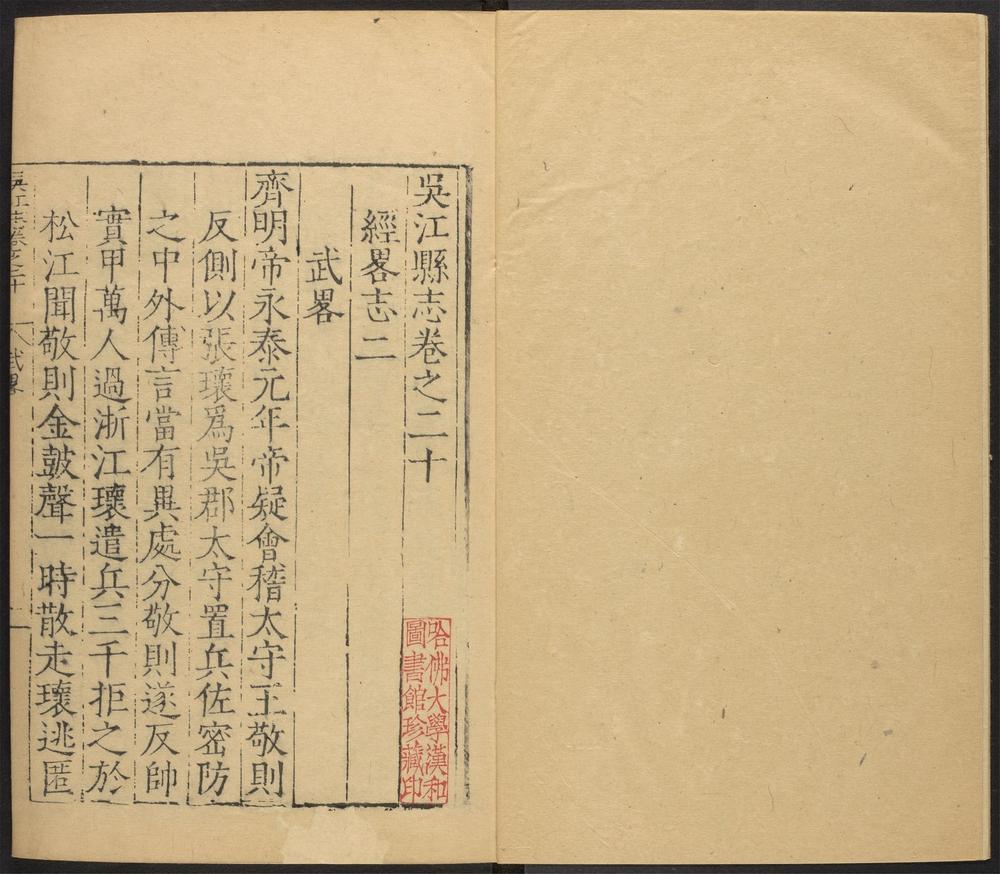 吳江縣志卷之二十
經畧志二
武畧
齊明帝永泰元年帝疑會稽太守王敬則
反側以張瓌爲吳郡太守置兵佐密防
之中外傳言當有異處分敬則遂反帥
實甲萬人過浙江瓌遣兵三千拒之於
松江聞敬則金鼓聲一時散走瓌逃匿
吳江縣志卷之二十
武畧
一
哈佛大學漢和
圖書館珍藏印